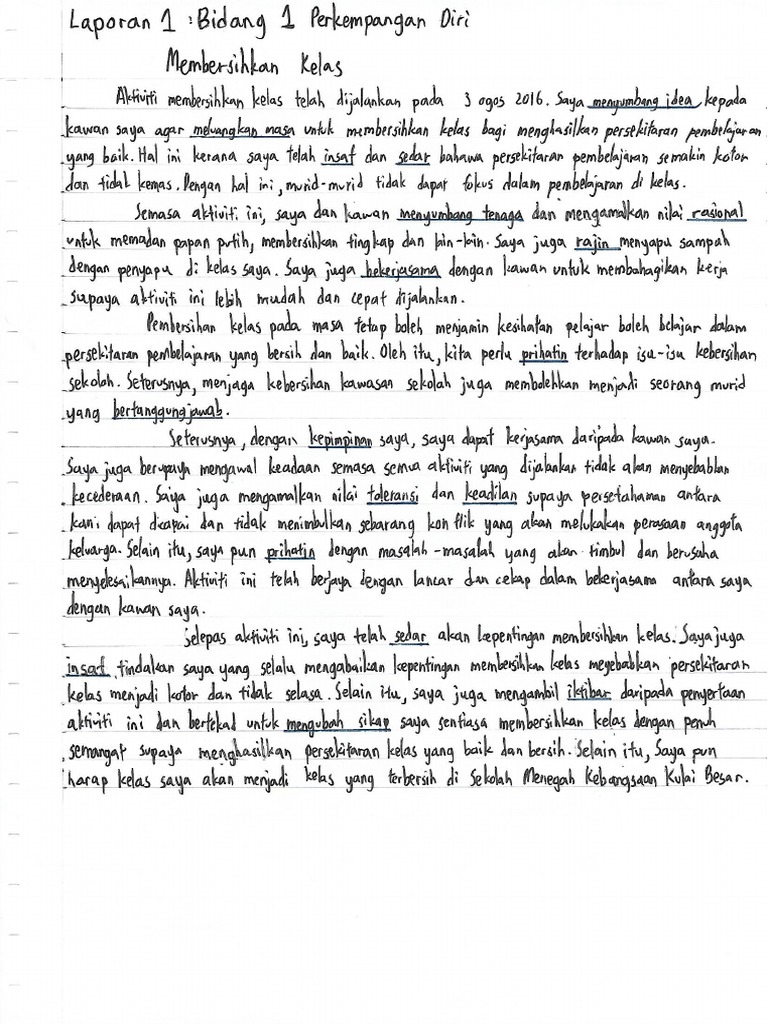 Laporan 1 : Bidang 1 Perkempangan Diri
Membersihkan Kelas
Aktiviti membersihkan kelas telah dijalankan pada 3 ogos 2016. Saya menyumbang idea kepada
kawan saya agar meluangkan masa untuk membersihkan kelas bagi menghasilkan persekitaran pembelajaran
yang baik. Hal ini kerana saya telah insaf dan sedar bahawa persekitaran pembelajaran semakin kotor
dan tidak kemas. Dengan hal ini, murid-murid tidak dapat fokus dalam pembelajaran di kelas.
Semasa aktiviti ini, saya dan kawan menyumbang tenaga dan mengamalkan nilai rasional
untuk memadan papan putih, membersihkan tingkap dan lain-lain. Saya juga rajin menyapu sampah
dengan penyapu di kelas saya. Saya juga bekerjasama dengan kawan untuk membahagikan kerja
supaya aktiviti ini lebih mudah dan cepat dijalankan.
Pembersihan kelas pada masa tetap boleh menjamin kesihatan pelajar boleh belajar dalam
persekitaran pembelajaran yang bersih dan baik. Oleh itu, kita perlu prihatin terhadap isu-isu kebersihan
sekolah. Seterusnya, menjaga kebersihan kawasan sekolah juga membolehkan menjadi seorang murid
yang bertanggungjawab.
Seterusnya, dengan kepimpinan saya, saya dapat kerjasama daripada kawan saya.
Saya juga berupaya mengawal keadaan semasa semua aktiviti yang dijalankan tidak akan menyebabkan
kecederaan. Saya juga mengamalkan nilai toleransi dan keadilan supaya persetahaman antara
kami dapat dicapai dan tidak menimbulkan sebarang konflik yang akan melukakan perasaan anggota
keluarga. Selain itu, saya pun prihatin dengan masalah-masalah yang akan timbul dan berusaha
menyelesaikannya. Aktiviti ini telah berjaya dengan lancar dan cekap dalam bekerjasama antara saya
dengan kawan saya.
Selepas aktiviti ini, saya telah sedar akan kepentingan membersihkan kelas. Saya juga
insaf tindakan saya yang selalu mengabaikan kepentingan membersihkan kelas meyebabkan persekitaran
kelas menjadi kotor dan tidak selasa. Selain itu, saya juga mengambil iktibar daripada penyertaan
aktiviti ini dan bertekad untuk mengubah sikap saya sentiasa membersihkan kelas dengan penuh
semangat supaya menghasilkan persekitaran kelas yang baik dan bersih. Selain itu, Saya pun
harap kelas saya akan menjadi kelas yang terbersih di Sekolah Menegah Kebangsaan Kulai Besar.